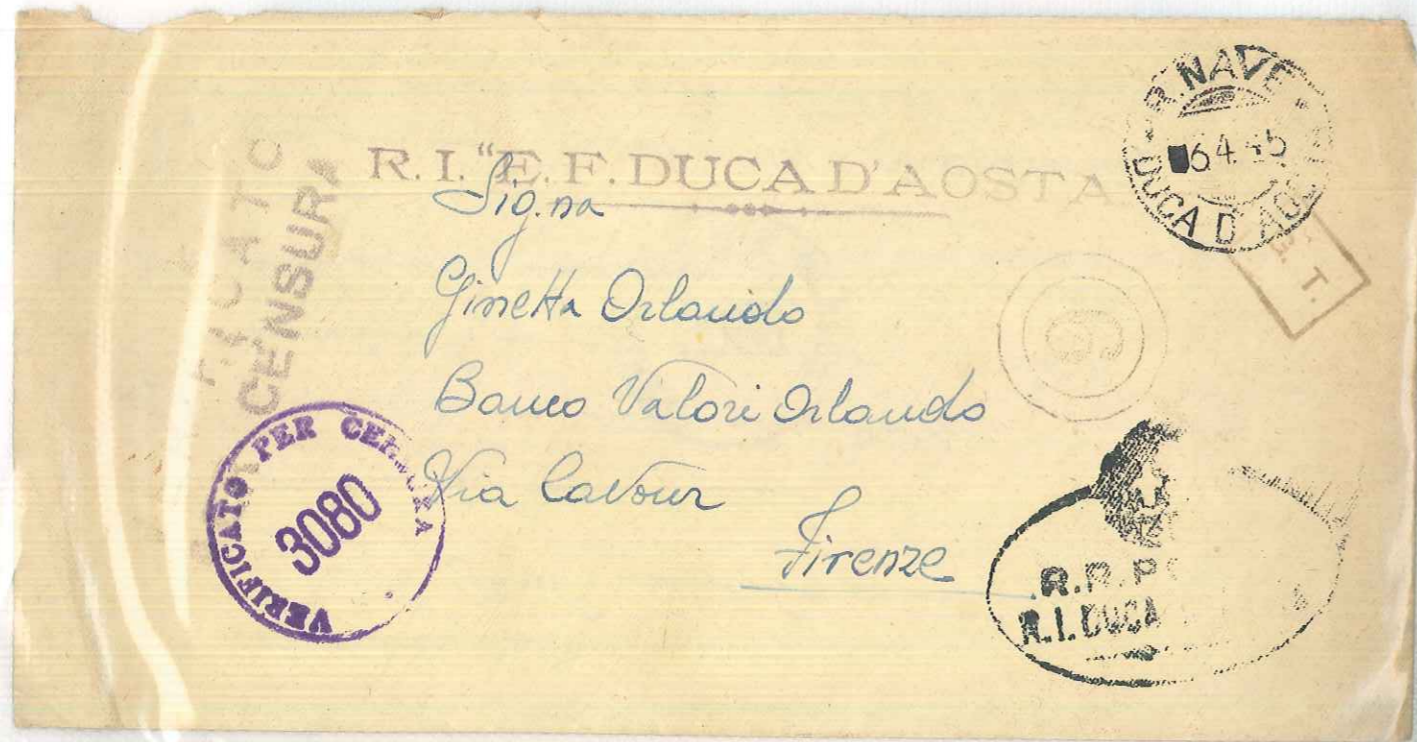 R. NAVE
6 4 45
DUCA D'AOSTA
R.I. "E.F. DUCA D'AOSTA
CENSURA
T.
Sig.na
Ginetta Orlando
Banco Valori Orlando
Via Cavour
Firenze
VERIFICATO PER CENSURA
3080
R.R. PO
R.I. DUCA